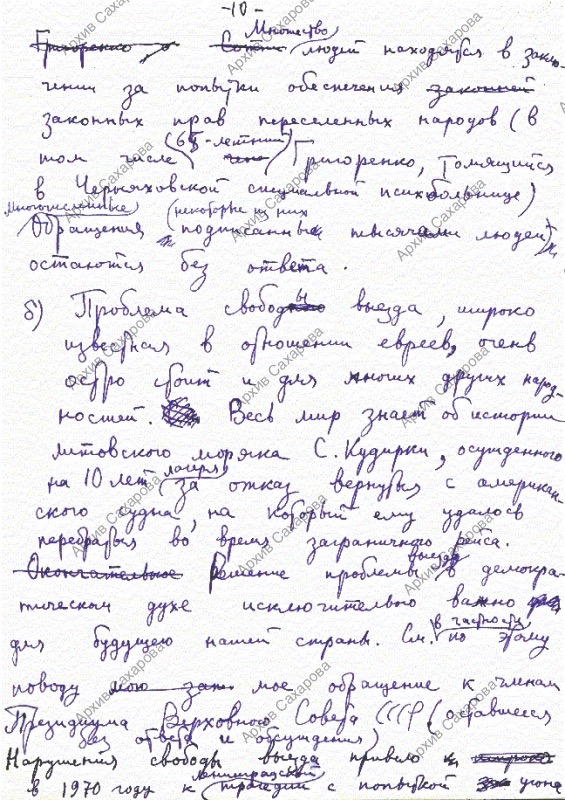 -10-
Множество
Григоренко людей находятся в заклю-
чении за попытки обеспечения законней
законных прав переселенных народов (в
том числе 65-летний Григоренко, томящийся
в Черняховской специальной психбольнице)
Многочисленные (некоторые из них
Обращения подписанные тысячами людей)
остаются без ответа.
б) Проблема свободы выезда, широко
известная в отношении евреев, очень
остро стоит и для многих других народ-
ностей. Весь мир знает об истории
литовского моряка С. Кудирки, осужденного
на 10 лет лагеря за отказ вернуться с американ-
ского судна, на который ему удалось
перебраться во время заграничного рейса.
Окончательное Решение проблемы выезда в демокра-
тическом духе исключительно важно
для будущего нашей страны. См. в частности по этому
поводу мое обращение к членам
Президиума Верховного Совета СССР (оставшееся
без ответа и обсуждения)
Нарушения свободы выезда привело к
в 1970 году к ленинградской трагедии с попыткой угона
Архив Сахарова